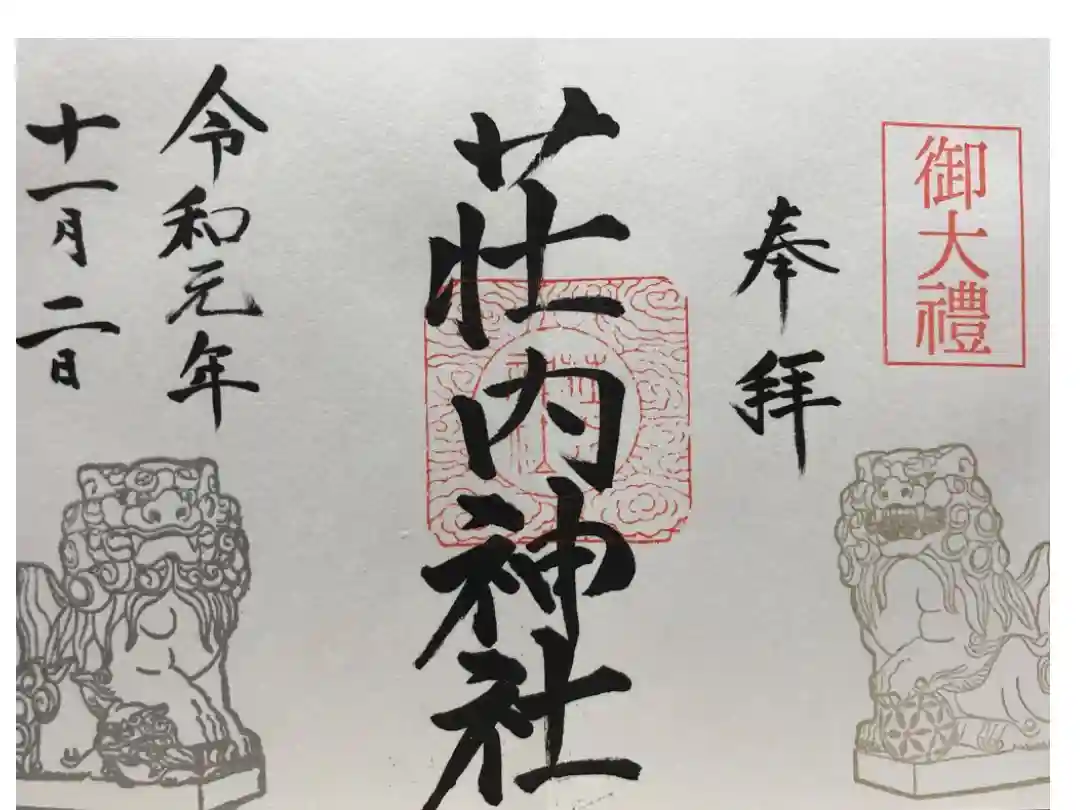 御大禮
奉拝
莊内神社
令和元年
十一月二日